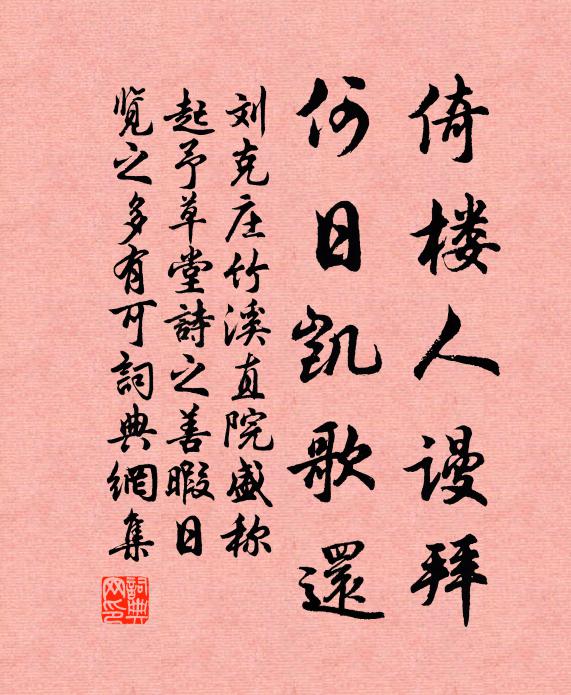 倚楼人谩拜
何日凯歌還
刘克庄竹溪直院盛称
起予草堂詩之善暇日
览之多有可詞典網集
詞典
网印